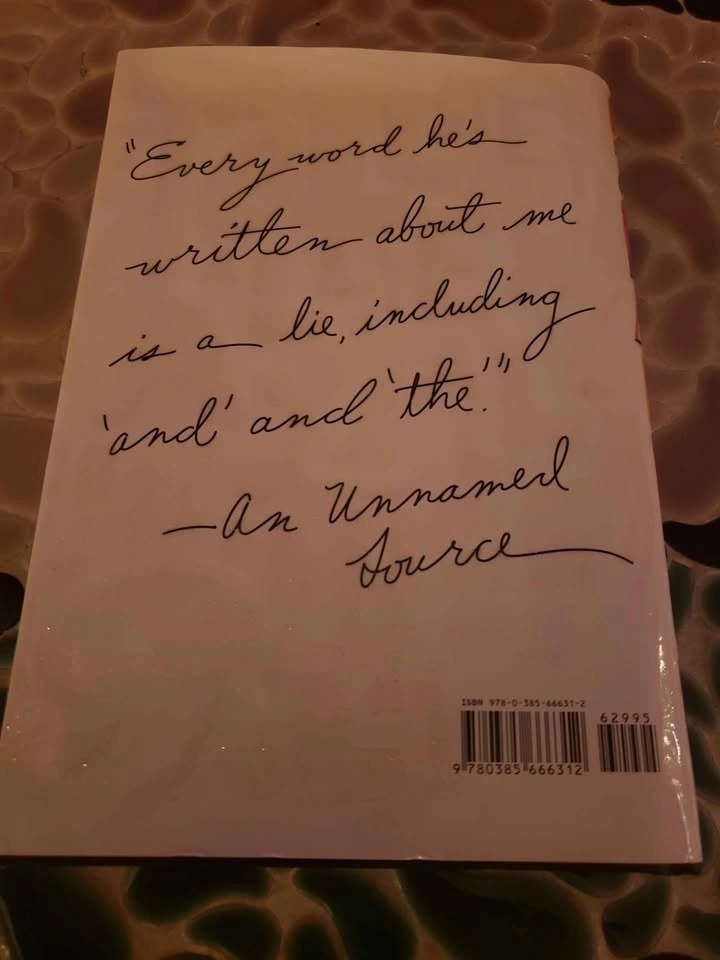 "Every word he's
written about me
is a lie, including
'and' and 'the.'"
—An Unnamed
Source
ISBN 978-0-385-66631-2
62995
9 780385 666312